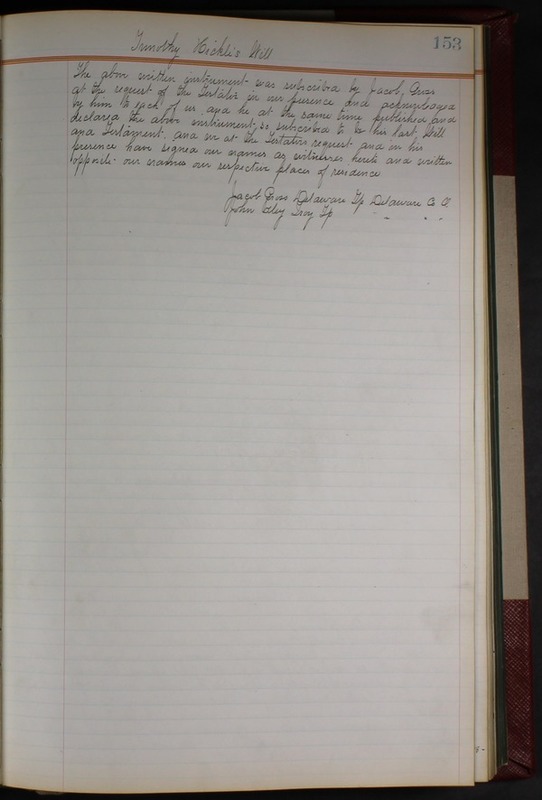 Timothy Hickli's Will
153
The above written instrument was subscribed by Jacob, Gross
at the request of the Testator in our presence and acknowledged
by him to each of us and he at the same time published and
declared the above instrument, so subscribed to be his last Will
and Testament, and we at the Testators request and in his
presence have signed our names as witnesses hereto and written
opposite our names our respective places of residence
Jacob Gross Delaware Tp Delaware Co O
John Troy Tp " " "